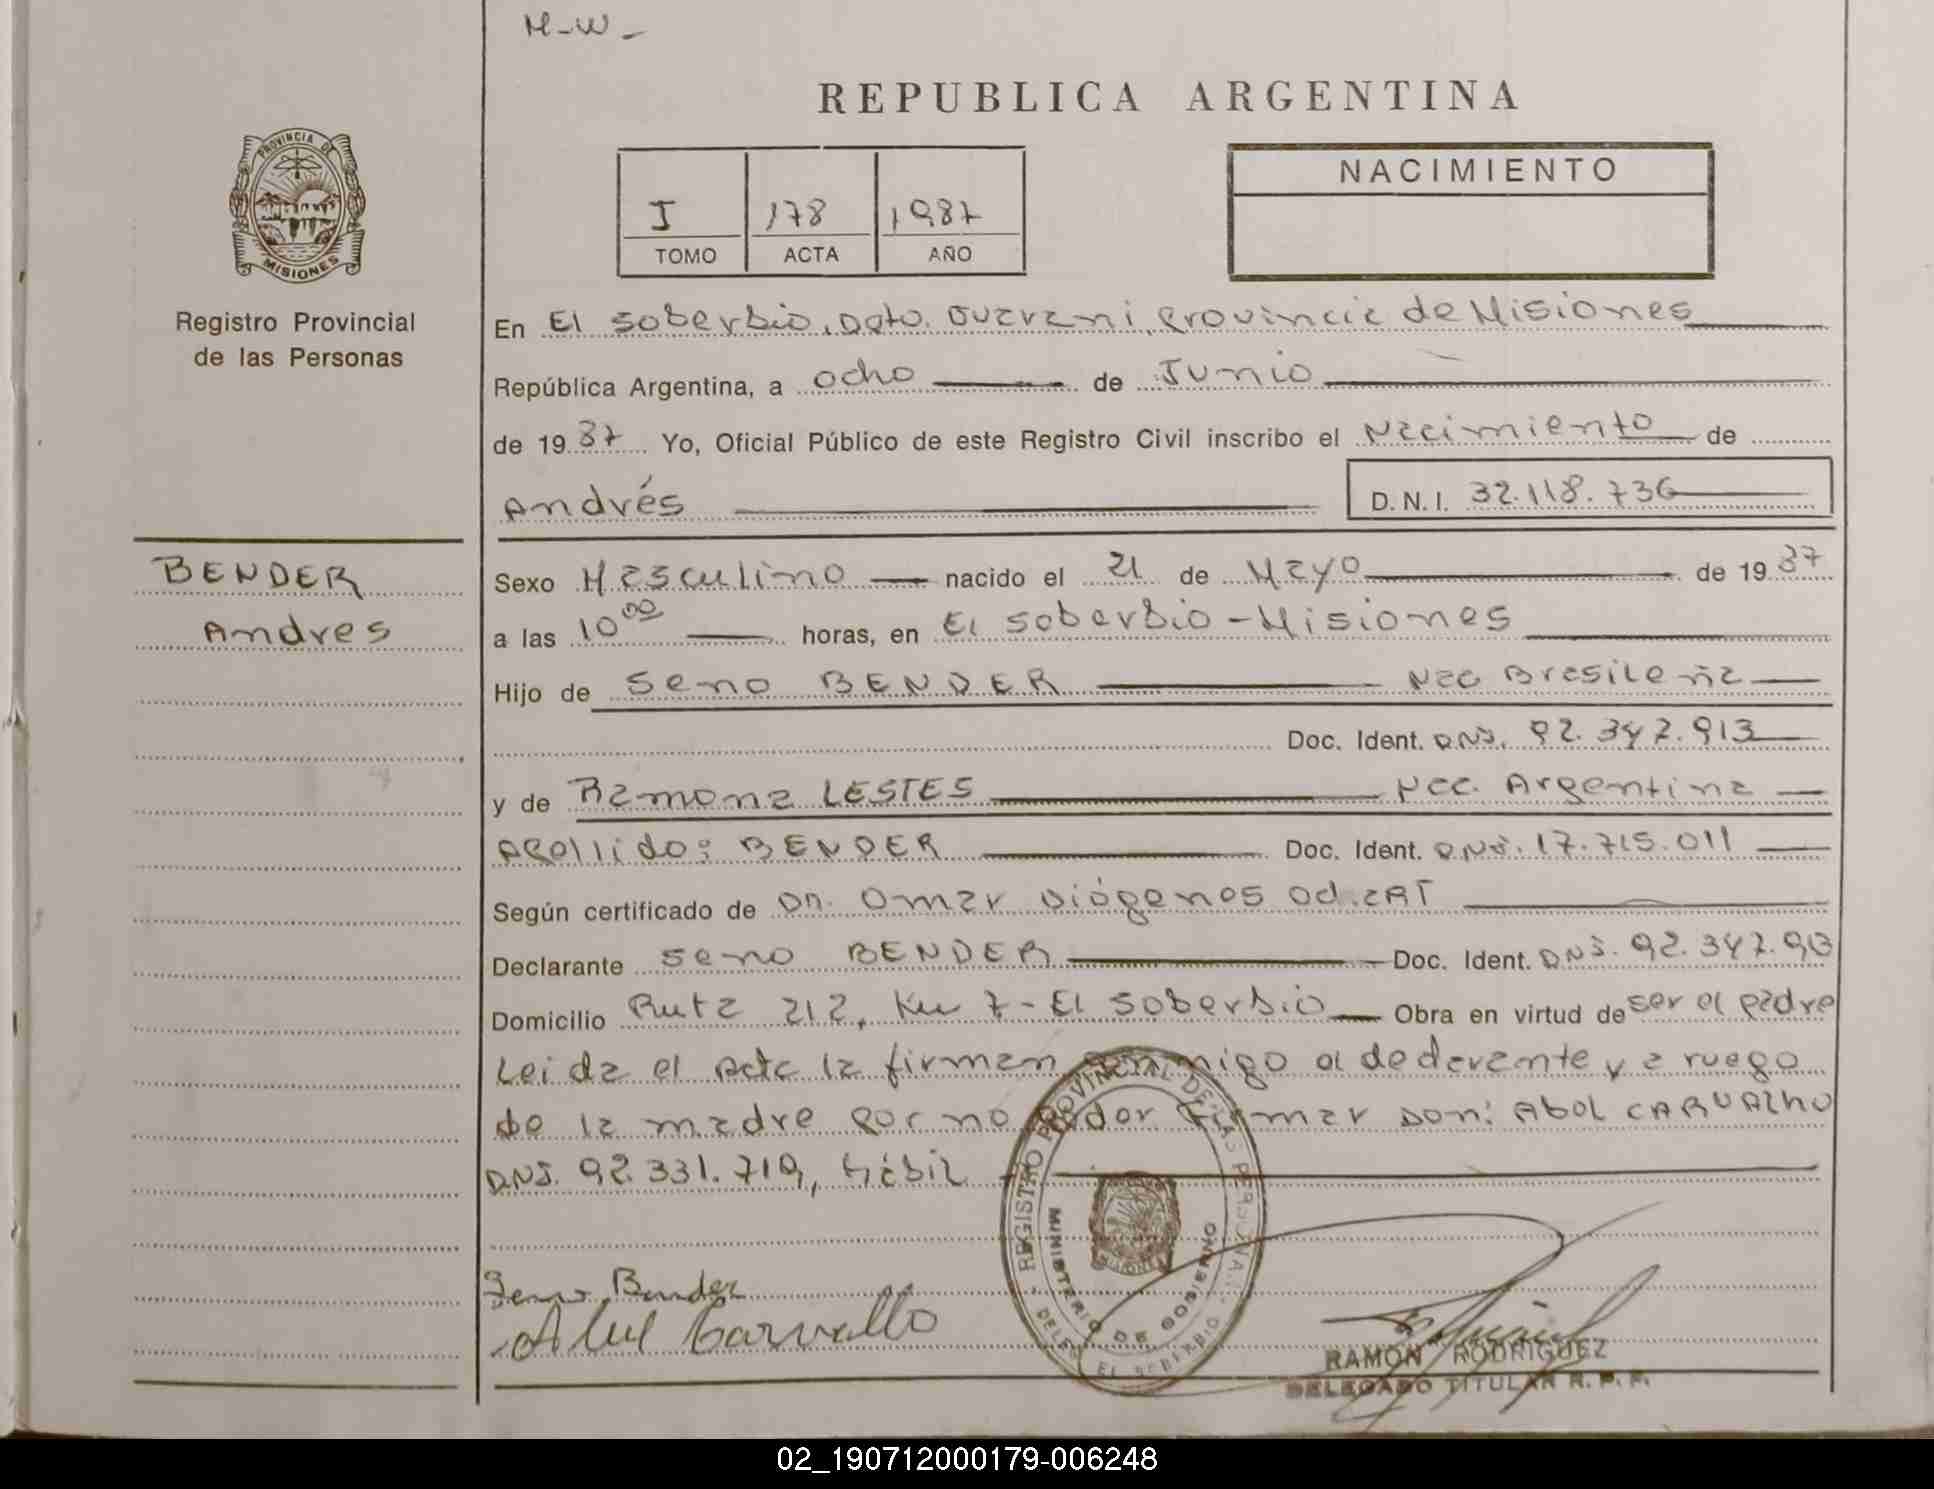 M-W-
REPUBLICA ARGENTINA
PROVINCIA DE
MISIONES
Registro Provincial
de las Personas
I 178 1987
TOMO ACTA AÑO
NACIMIENTO
En El Soberbio, Dpto. Guarani, Provincia de Misiones
República Argentina, a ocho de Junio
de 1987 Yo, Oficial Público de este Registro Civil inscribo el Nacimiento de
Andrés D.N.I. 32.118.736
BENDER
Andres
Sexo Masculino nacido el 21 de Mayo de 1987
a las 10 00 horas, en El Soberbio - Misiones
Hijo de Seno BENDER Nac Brasileña
Doc. Ident. DNI. 92.347.913
y de Ramona LESTES Nac. Argentina
Apellido: BENDER Doc. Ident. DNI. 17.715.011
Según certificado de Dn. Omar Diógenes
Declarante Seno BENDER Doc. Ident. DNI. 92.347.913
Domicilio Ruta 212, Km 7 - El Soberbio Obra en virtud de ser el padre
Leida el Acta la firman conmigo el declarante y a ruego
de la madre por no poder firmar Don: Abel CARVALHO
DNI. 92.331.719, hábil
REGISTRO PROVINCIAL DE LAS PERSONAS
MINISTERIO DE GOBIERNO
MISIONES
EL SOBERBIO
Seno Bender
Abel Carvallo
RAMON RODRIGUEZ
DELEGADO TITULAR R. P. P.
02_190712000179-006248